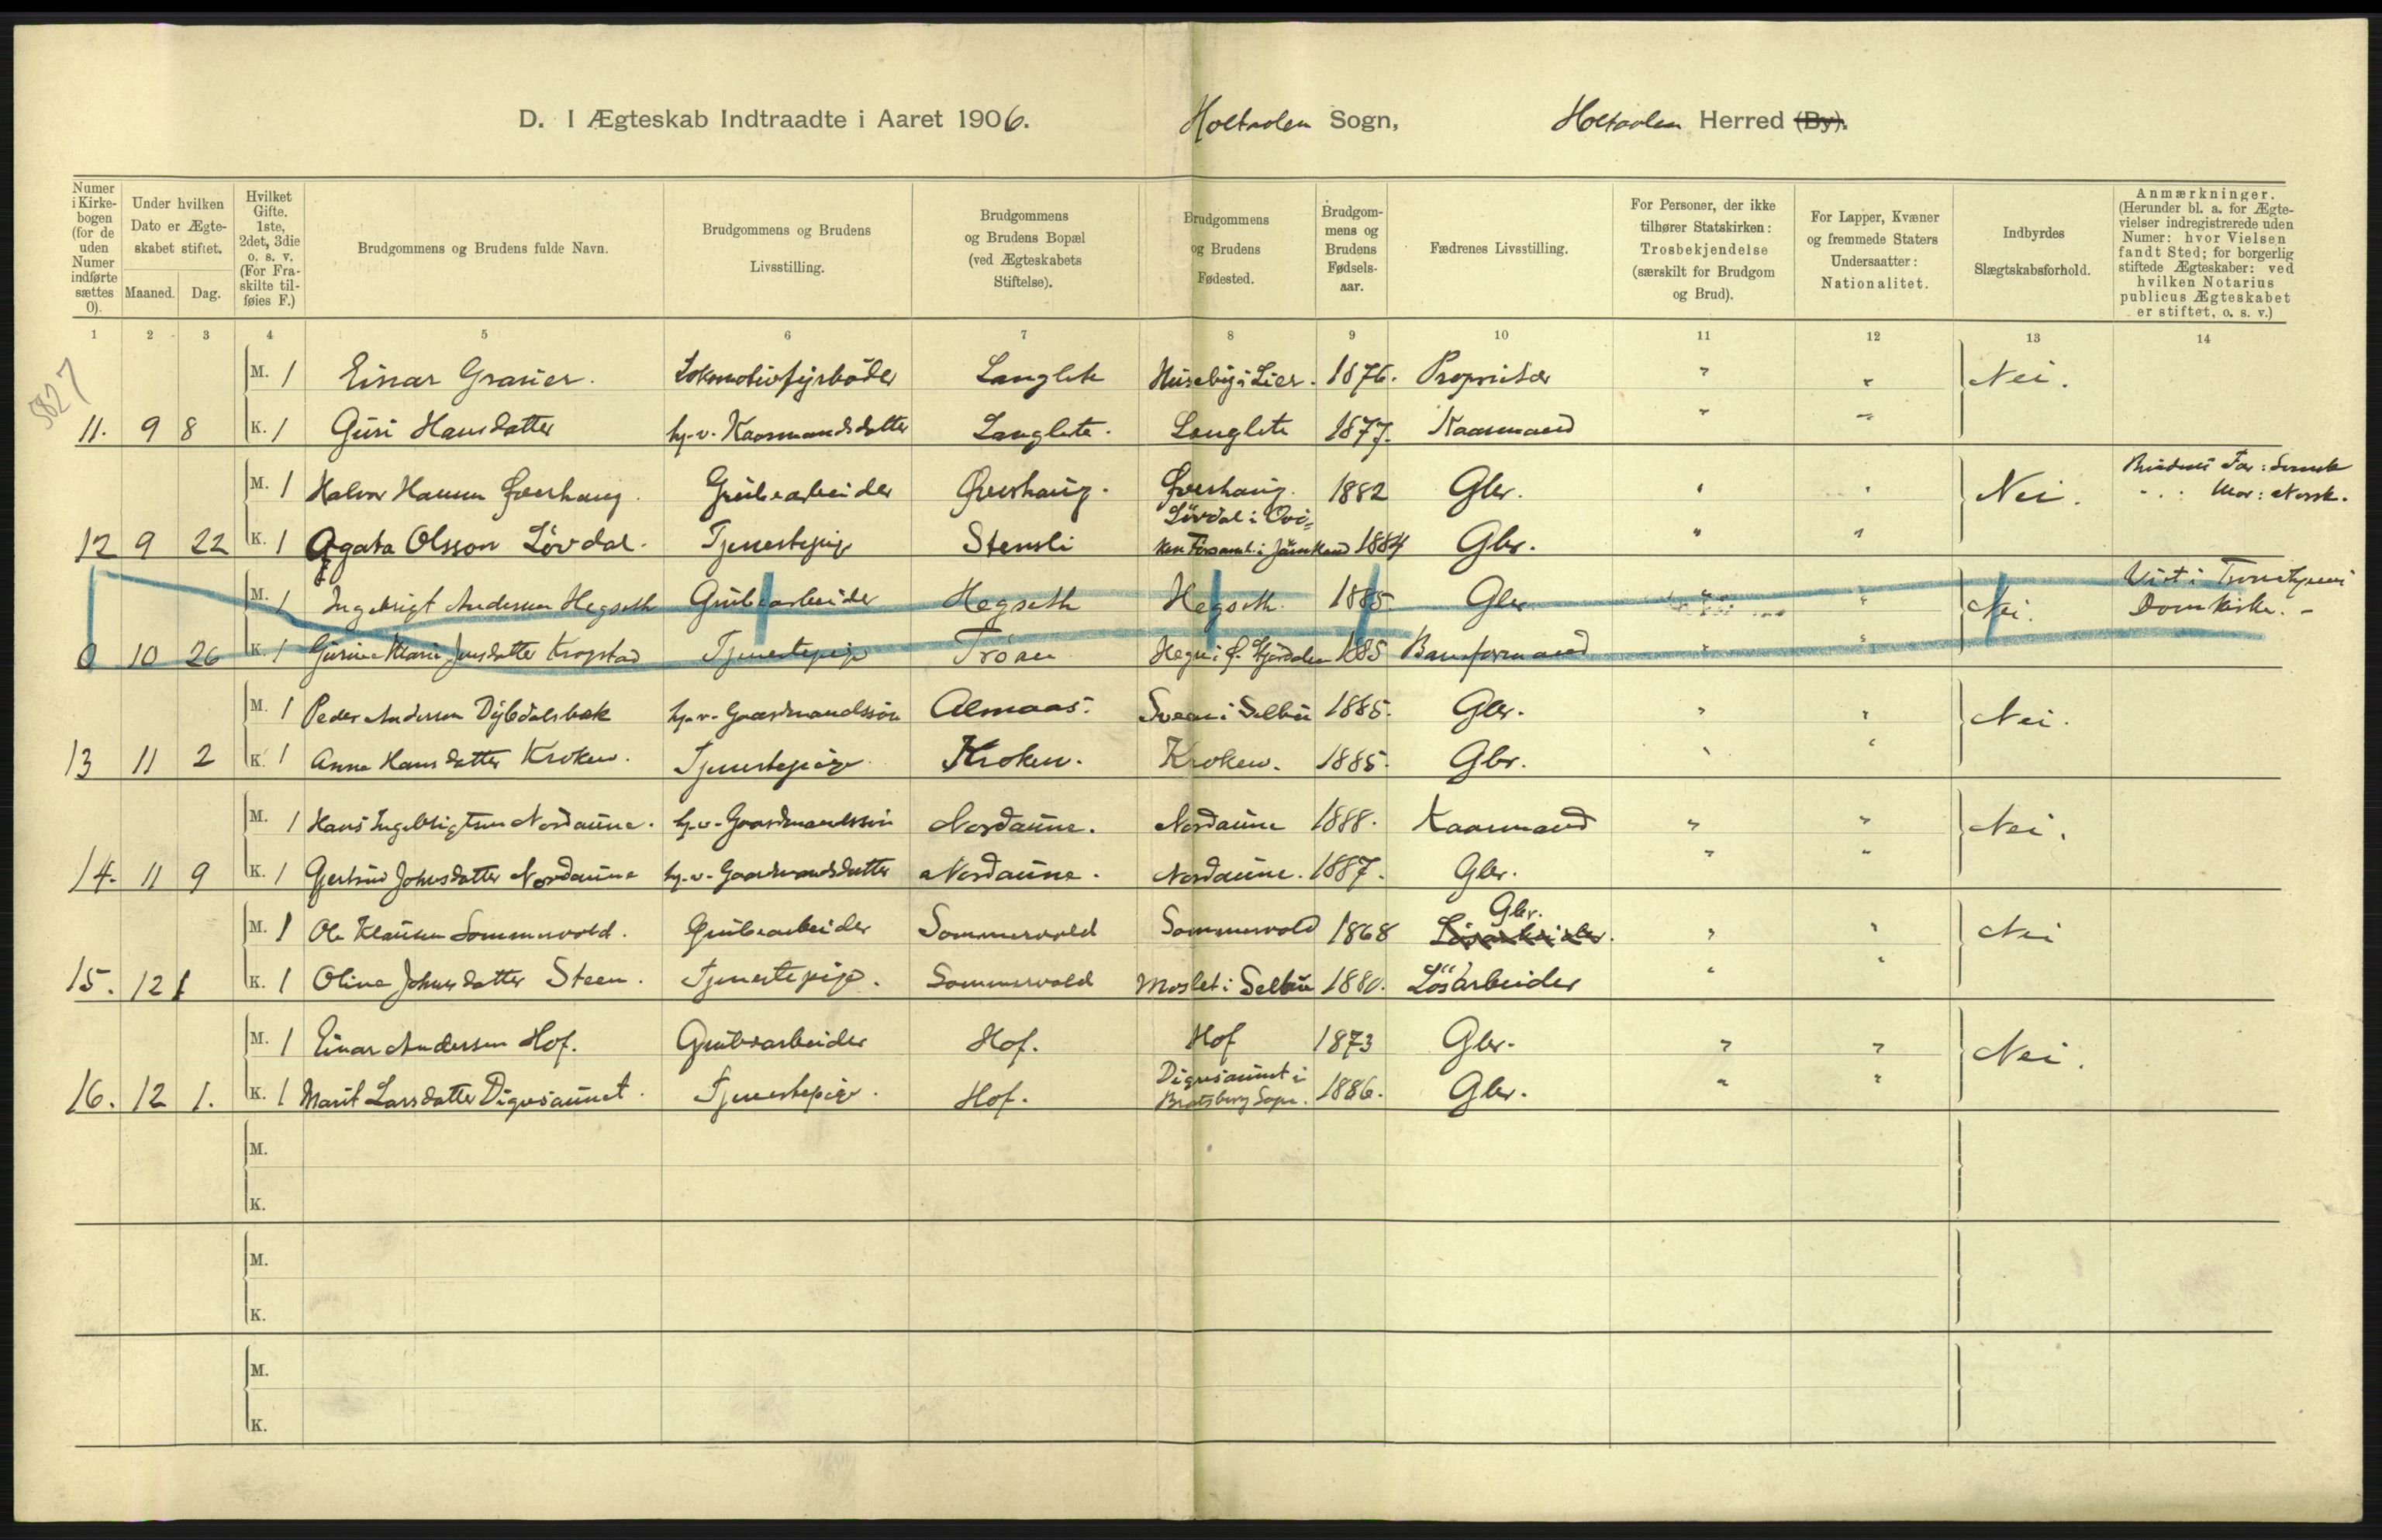 D. I Ægteskab Indtraadte i Aaret 1906. Holtaalen Sogn, Holtaalen Herred (By).
Numer i Kirkebogen (for de uden Numer indførte sættes 0).
Under hvilken Dato er Ægteskabet stiftet.
Maaned. Dag.
Hvilket Gifte. 1ste, 2det, 3die o. s. v. (For Fraskilte tilføies F.)
Brudgommens og Brudens fulde Navn.
Brudgommens og Brudens Livsstilling.
Brudgommens og Brudens Bopæl (ved Ægteskabets Stiftelse).
Brudgommens og Brudens Fødested.
Brudgommens og Brudens Fødselsaar.
Fædrenes Livsstilling.
For Personer, der ikke tilhører Statskirken: Trosbekjendelse (særskilt for Brudgom og Brud).
For Lapper, Kvæner og fremmede Staters Undersaatter: Nationalitet.
Indbyrdes Slægtskabsforhold.
Anmærkninger. (Herunder bl. a. for Ægtevielser indregistrerede uden Numer: hvor Vielsen fandt Sted; for borgerlig stiftede Ægteskaber: ved hvilken Notarius publicus Ægteskabet er stiftet, o. s. v.)
1 2 3 4 5 6 7 8 9 10 11 12 13 14
5827
M. 1 Einar Graner. Lokomotivfyrbøder Langlete Huseby i Lier. 1876. Proprietær " " Nei.
11. 9 8 K. 1 Guri Hansdatter hj.v. Kaarmandsdatter Langlete. Langlete 1877. Kaarmand " "
M. 1 Halvor Hansen Øverhaug. Grubearbeider Øverhaug. Øverhaug. 1882 Gbr. " " Nei. Brudens Far: Svensk
" " : Mor: Norsk.
12 9 22 K. 1 Agata Olsson Lövdal. Tjenestepige Stensli Lövdal i Ovi=
ken Forsaml. i Jämtland 1884 Gbr. " "
M. 1 Ingebrigt Andersen Hegseth Grubearbeider Hegseth Hegseth. 1885 Gbr " " Nei. Viet i Trondhjems
Domkirke. -
0 10 26 K. 1 Gurine Marie Jensdatter Kragstad Tjenestepige Tröen Hegre i Ø. Stjørdalen 1885 Baneformand " "
M. 1 Peder Andersen Dybdalsbæk hj.v. Gaardmandssøn Almaas. Sveen i Selbu 1885. Gbr. " " Nei.
13 11 2 K. 1 Anne Hansdatter Kroken. Tjenestepige Kroken. Kroken. 1885. Gbr. " "
M. 1 Hans Ingebrigtsen Nordaune. hj.v. Gaardmandssøn Nordaune. Nordaune 1888. Kaarmand " " Nei.
14. 11 9 K. 1 Gjertrud Johnsdatter Nordaune hj.v. Gaardmandsdatter Nordaune. Nordaune. 1887. Gbr. " "
M. 1 Ole Klausen Sommervold. Grubearbeider Sommervold Sommervold 1868 Gbr. Løsarbeider. " " Nei
15. 12 1 K. 1 Oline Johnsdatter Steen. Tjenestepige. Sommervold Moslet i Selbu 1880. Lösarbeider " "
M. 1 Einar Andersen Hof. Grubearbeider Hof. Hof 1873 Gbr. " " Nei.
16. 12 1. K. 1 Marit Larsdatter Digresaunet. Tjenestepige. Hof. Digresaunet i
Bratsberg Sogn. 1886. Gbr. " "
M.
K.
M.
K.
M.
K.